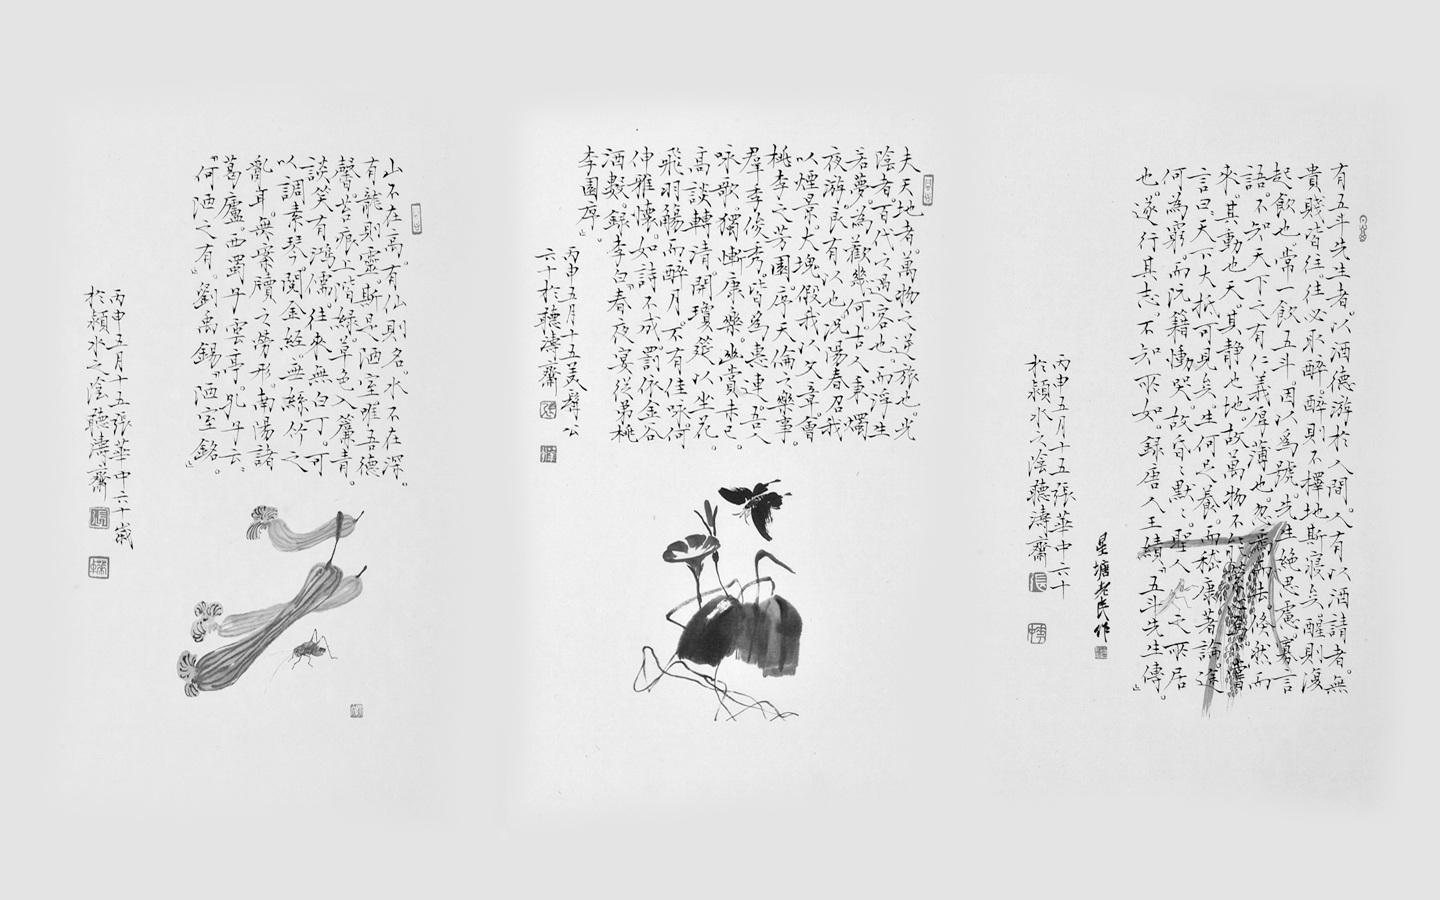 有五斗先生者。以酒德游於人間。人有以酒請者。無
貴賤皆往。往必取醉。醉則不擇地斯寢矣。醒則復
起飲也。常一飲五斗。因以為號。先生絕思慮。寡言
語。不知天下之有仁義厚薄也。忽焉而去。倏然而
來。其動也天。其靜也地。故萬物不能縈心焉。嘗
言曰。天下大抵可見矣。生何足養。而嵇康著論。途
何為窮。而阮籍慟哭。故昏〻默〻。聖人之所居
也。遂行其志。不知所如。錄唐人王績『五斗先生傳』。
星塘老民作
丙申五月十五張華中六十
於潁水之陰聽濤齋
夫天地者。萬物之逆旅也。光
陰者。百代之過客也。而浮生
若夢。為歡幾何。古人秉燭
夜游。良有以也。況陽春召我
以煙景。大塊假我以文章。會
桃李之芳園。序天倫之樂事。
羣季俊秀。皆為惠連。吾人
咏歌。獨慚康樂。幽賞未已。
高談轉清。開瓊筵以坐花。
飛羽觴而醉月。不有佳咏。何
伸雅懷。如詩不成。罰依金谷
酒數。錄李白『春夜宴從弟桃
李園序』。
丙申五月十五美髯公
六十於聽濤齋
山不在高。有仙則名。水不在深。
有龍則靈。斯是酒室。唯吾德
馨。苔痕上階綠。草色入簾青。
談笑有鴻儒。往來無白丁。可
以調素琴。閱金經。無絲竹之
亂耳。無案牘之勞形。南陽諸
葛廬。西蜀子雲亭。孔子云。
『何酒之有』。劉禹錫『酒室銘』。
丙申五月十五張華中六十歲
於潁水之陰聽濤齋